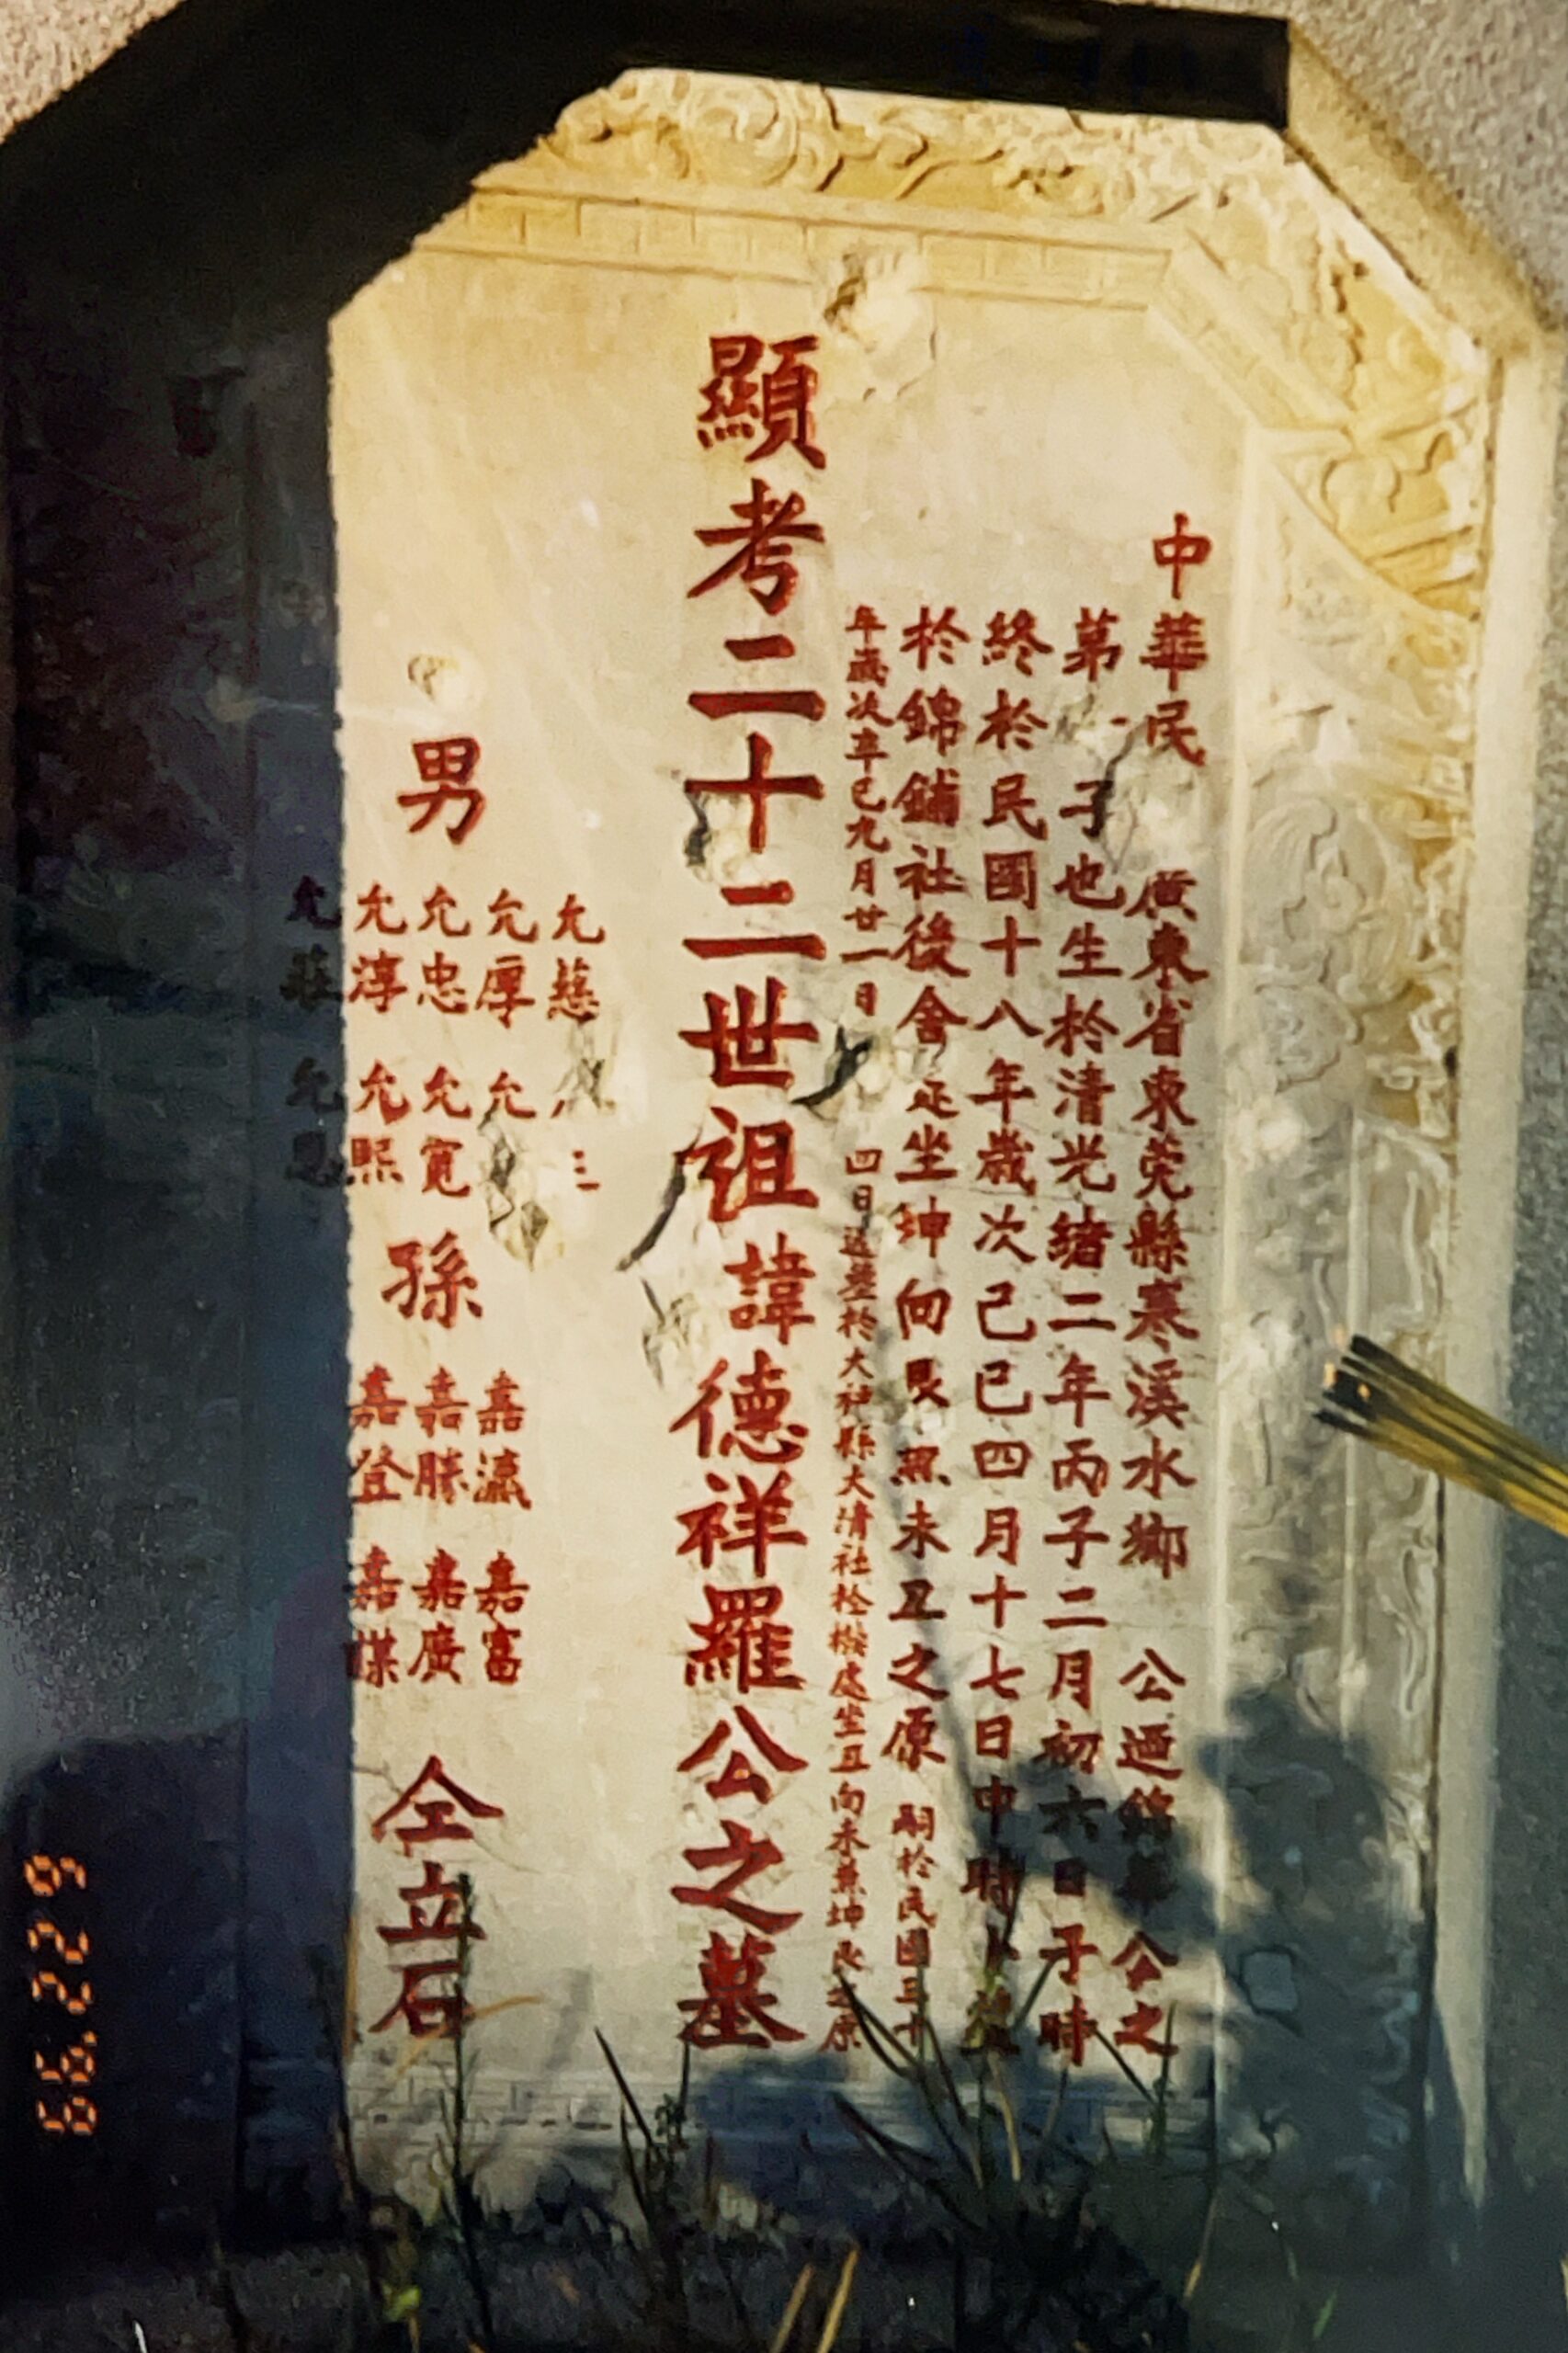 中華民 廣東省東莞縣寒溪水鄉 公迺錦華公之
第 子也生於清光緒二年丙子二月初六日子時
終於民國十八年歲次己巳四月十七日申時
於錦鋪社後會 坐坤向艮 未丑之原 嗣於民國三十
年歲次辛巳九月廿一日 四日 葬於大 縣大清社 處坐丑向未兼坤艮之原
顯考二十二世祖諱德祥羅公之墓
男
允慈
允厚 允
允忠 允寬
允淳 允熙
允莊 允恩
孫
嘉瀛 嘉富
嘉勝 嘉廣
嘉登 嘉謀
仝立石
6.22'99